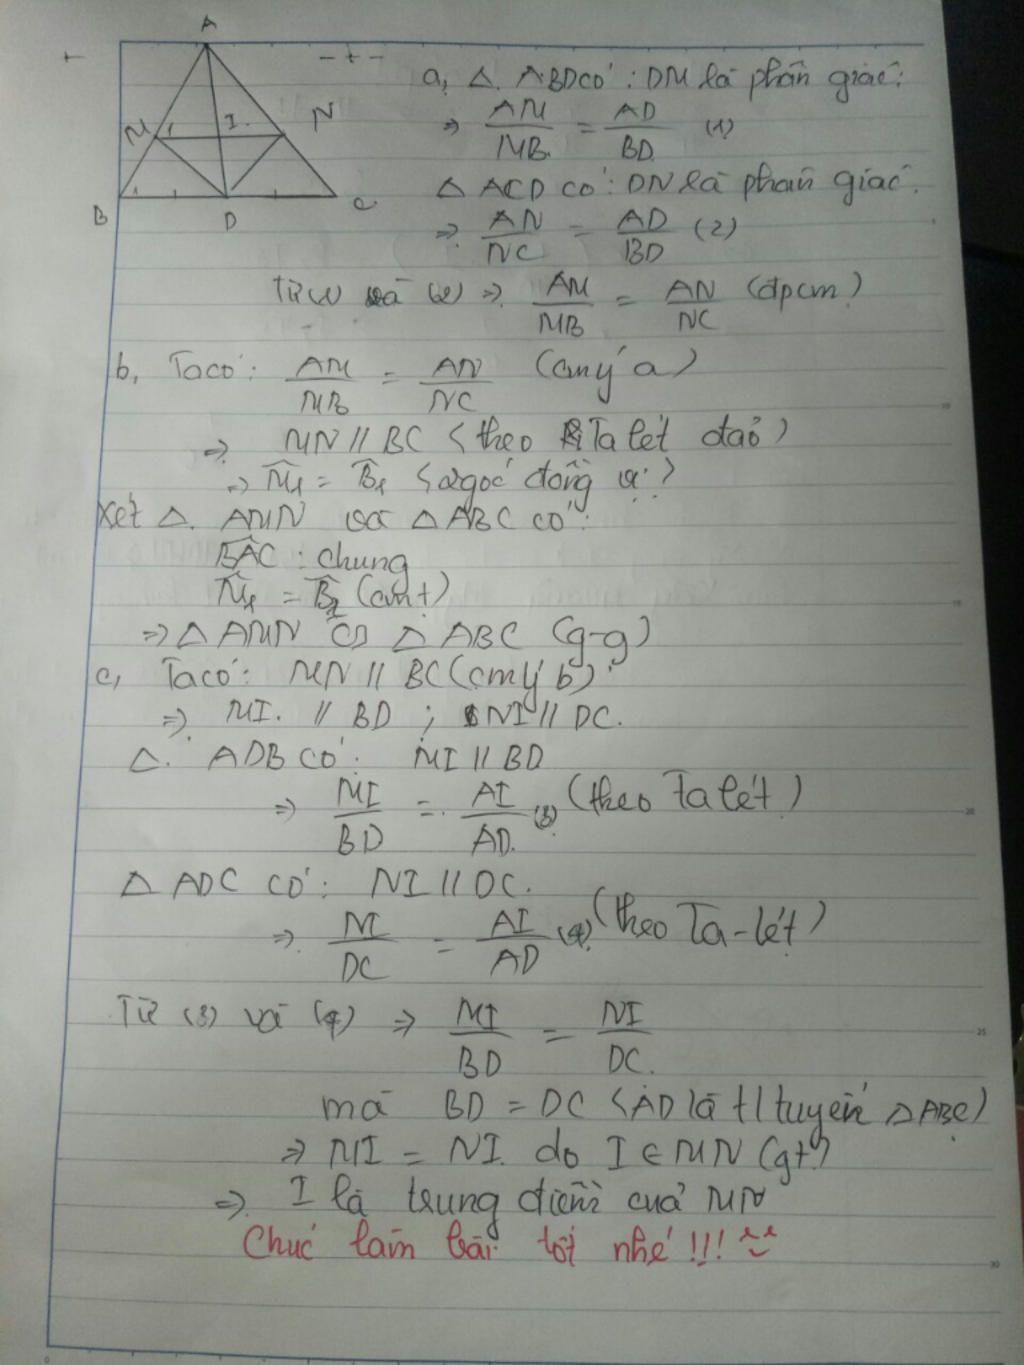 A
M 1 I N
B 1 D C
a, △ ABD có: DM là phân giác:
⇒ AM/MB = AD/BD (1)
△ ACD có: DN là phân giác.
⇒ AN/NC = AD/BD (2)
Từ (1) và (2) ⇒ AM/MB = AN/NC (đpcm)
b, Ta có: AM/MB = AN/NC (cm ý a)
⇒ MN // BC (theo Ta lét đảo)
⇒ M̂1 = B̂1 (2 góc đồng vị)
Xét △ AMN và △ ABC có:
BAC : chung
M̂1 = B̂1 (cmt)
⇒ △ AMN ∽ △ ABC (g-g)
c, Ta có: MN // BC (cm ý b)
⇒ MI // BD ; NI // DC.
△ ADB có: MI // BD
⇒ MI/BD = AI/AD (3) (theo Ta lét)
△ ADC có: NI // DC.
⇒ NI/DC = AI/AD (4) (theo Ta-lét)
Từ (3) và (4) ⇒ MI/BD = NI/DC.
mà BD = DC (AD là t/tuyến △ABC)
⇒ MI = NI. do I ∈ MN (gt)
⇒ I là trung điểm của MN
Chúc làm bài tốt nhé !!!